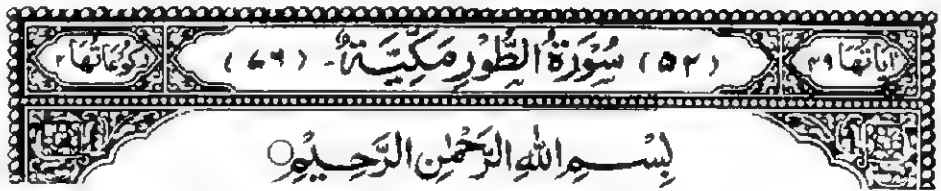 اٰيَاتُهَا ۴۹ (۵۲) سُوْرَةُ الطُّوْرِ مَكِّيَّةٌ (۷۶) رُكُوْعَاتُهَا ۲
بِسْمِ اللهِ الرَّحْمٰنِ الرَّحِيْمِ ○